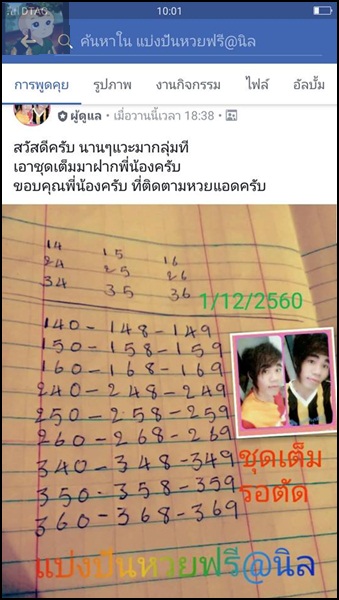 DTAC 10:01
ค้นหาใน แบ่งปันหวยฟรี@นิล
การพูดคุย รูปภาพ งานกิจกรรม ไฟล์ อัลบั้ม
ผู้ดูแล • เมื่อวานนี้เวลา 18:38 •
สวัสดีครับ นานๆแวะมากลุ่มที
เอาชุดเต็มมาฝากพี่น้องครับ
ขอบคุณพี่น้องครับ ที่ติดตามหวยแอดครับ
14 15 16
24 25 26
34 35 36
1/12/2560
140-148-149
150-158-159
160-168-169
240-248-249
250-258-259
260-268-269
340-348-349
350-358-359
360-368-369
ชุดเต็ม
รอตัด
แบ่งปันหวยฟรี@นิล